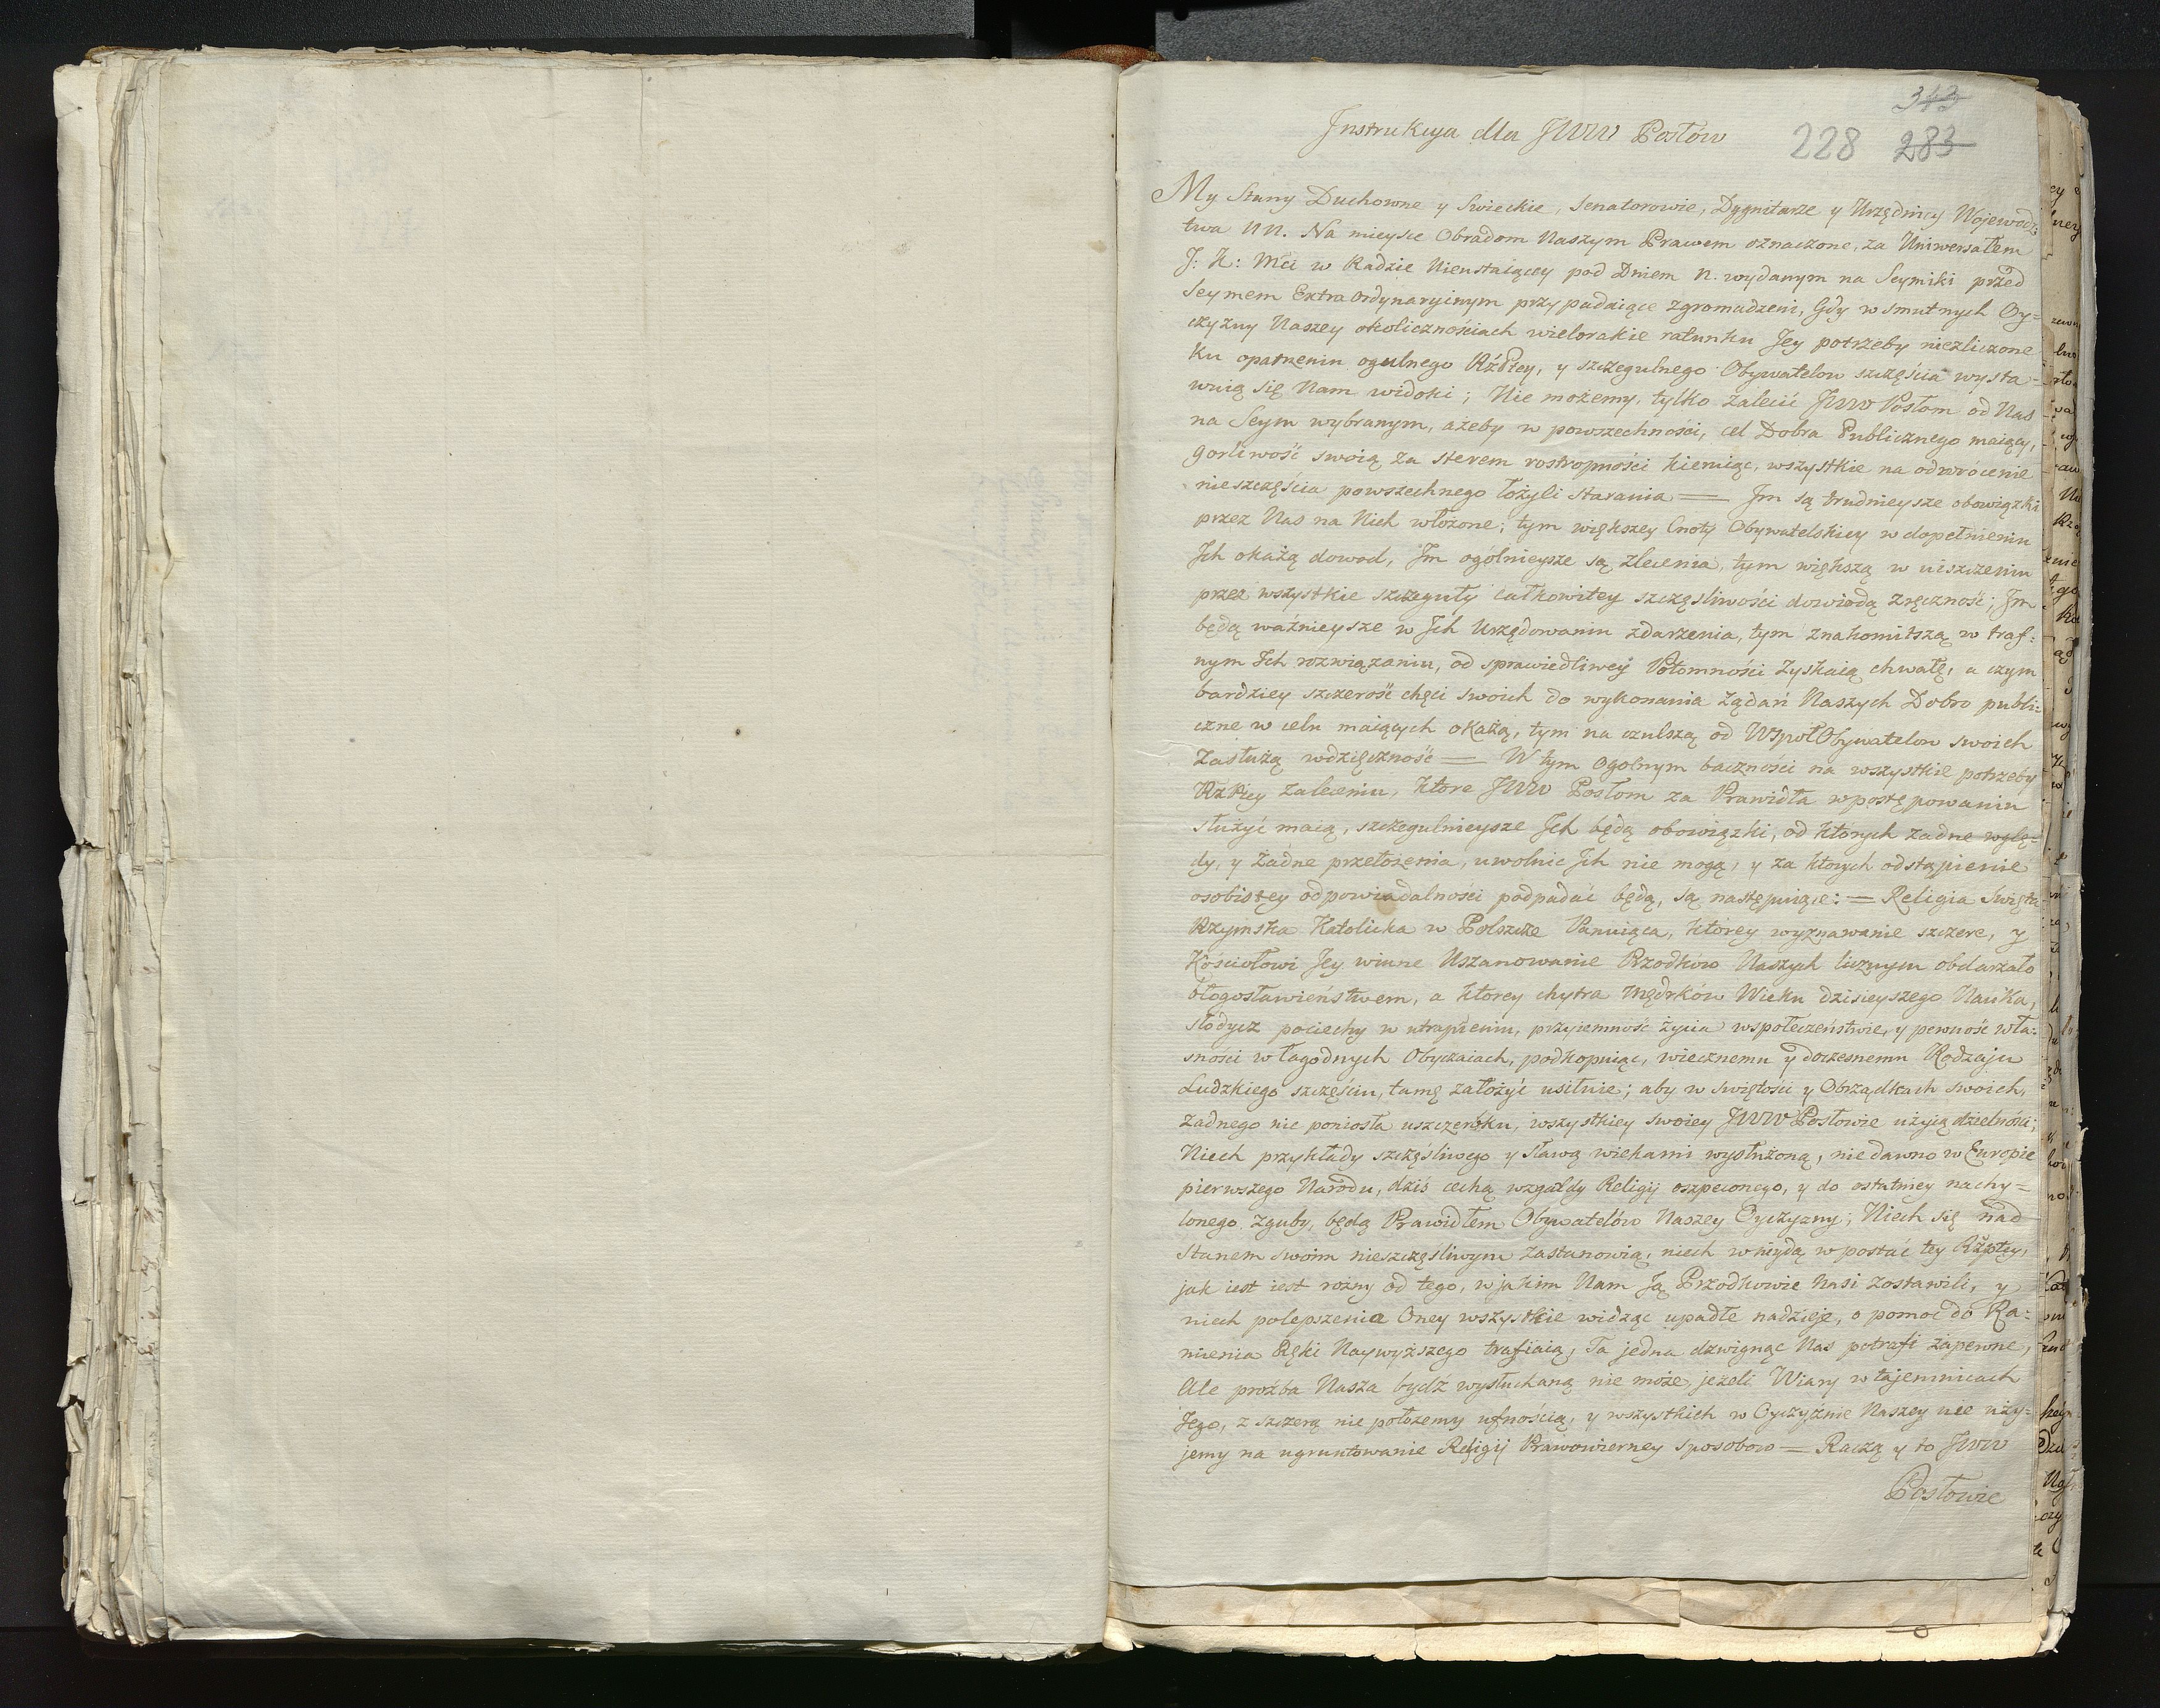 343
Instrukcya dla JWW Posłów
228 283
My Stany Duchowne y Swieckie, Senatorowie, Dygnitarze y Urzędnicy Wojewodz:
twa NN. Na mieysce Obradom Naszym Prawem oznaczone, za Uniwersałem
J: K: Mci w Radzie Nieustaiącey pod Dniem N. wydanym na Seymiki przed
Seymem Extra Ordynaryinym przypadaiące zgromadzeni, Gdy w smutnych Oy=
czyzny Naszey okolicznościach wielorakie ratunku Jey potrzeby niezliczone
ku opatrzeniu ogulnego Rzpltey, y szczegulnego Obywatelow szczęścia wysta=
wuią się Nam widoki; Nie możemy, tylko zalecić JWW Posłom od Nas
na Seym wybranym, ażeby w powszechności, cel Dobra Publicznego maiący,
gorliwość swoią za sterem rostropności kieruiąc, wszystkie na odwrócenie
nieszczęścia powszechnego łożyli starania = Im są trudnieysze obowiązki
przez Nas na Nich włożone; tym większey Cnoty Obywatelskiey w dopełnieniu
Ich okażą dowod, Im ogólnieysze są zlecenia, tym większą w uiszczeniu
przez wszystkie szczeguły całkowitey szczęśliwości dowiodą zręczność; Im
będą ważnieysze w Ich Urzędowaniu zdarzenia, tym znakomitszą w traf:
nym Ich rozwiązaniu, od sprawiedliwey Potomności zyskaią chwałę, a czym
bardziey szczerość chęci swoich do wykonania żądań Naszych Dobro publi:
czne w celu maiących okażą, tym na czulszą od WspołObywatelow swoich
Zasłużą wdzięczność = W tym Ogolnym baczności na wszystkie potrzeby
Rzpltey zaleceniu, które JWW Posłom za Prawidła w postępowaniu
służyć maią, szczegulnieysze Ich będą obowiązki, od których żadne wzglę=
dy, y żadne przełożenia, uwolnić Ich nie mogą, y za których odstąpienie
osobistey odpowiadalności podpadać będą, są następuiące: = Religia Swięta
Rzymska Katolicka w Polszcze Panuiąca, którey wyznawanie szczere, y
Kościołowi Jey winne Uszanowanie Przodków Naszych licznym obdarzało
błogosławieństwem, a ktorey chytra mędrków Wieku dzisieyszego Nauka,
słodycz pociechy w utrapieniu, przyiemność życia w społeczeństwie, y pewność wła:
sności w łagodnych Obyczaiach, podkopuiąc, wiecznemu y doczesnemu Rodzaju
Ludzkiego szczęściu, tamę założyć usiłuie; aby w swiętości y Obrządkach swoich,
żadnego nie poniosła uszczerbku, wszystkiey swoiey JWW Posłowie użyią dzielności;
Niech przykłady szczęśliwego y sławą wiekami wysłużoną, nie dawno w Europie
pierwszego Narodu, dziś cechą wzgardy Religij oszpeconego, y do ostatniey nachy=
lonego zguby, będą Prawidłem Obywatelów Naszey Oyczyzny; Niech się nad
Stanem swoim nieszczęśliwym zastanowią, niech wniydą w postać tey Rzpltey,
jak iest iest rożny od tego, w jakim Nam Ją Przodkowie Nasi zostawili, y
niech polepszenia Oney wszystkie widząc upadłe nadzieje, o pomoc do Ra:
mienia Ręki Naywyższego trafiaią, Ta jedna dzwignąć Nas potrafi zapewne,
Ale prożba Nasza bydź wysłuchaną nie może, jeżeli Wiary w tajemnicach
Jego, z szczerą nie położemy ufnością, y wszystkich w Oyczyźnie Naszey nie uży=
jemy na ugruntowanie Religij Prawowierney sposobow = Raczą y to JWW
Posłowie